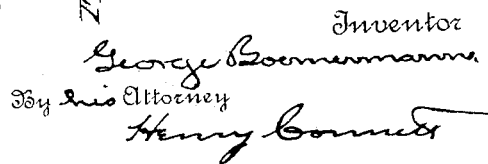 Inventor
George Boernermann.
By his Attorney
Henry Connett